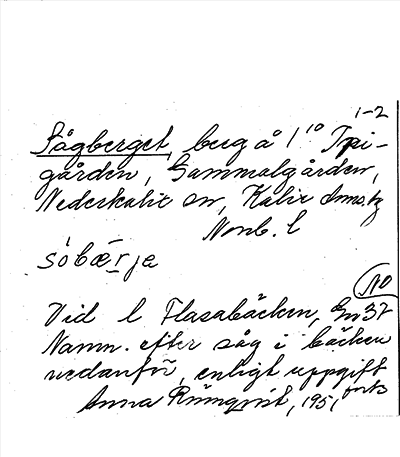 1-2
Sågberget, berg å 1¹⁰
gården, Gammalgården,
Nederkalix sn, Kalix
Norrb. l
sòbær̄je
NO
Vid l Flasabäcken,
Namn. efter såg i bäcken
nedanför, enligt uppgift
Anna Rönnqvist, 1951